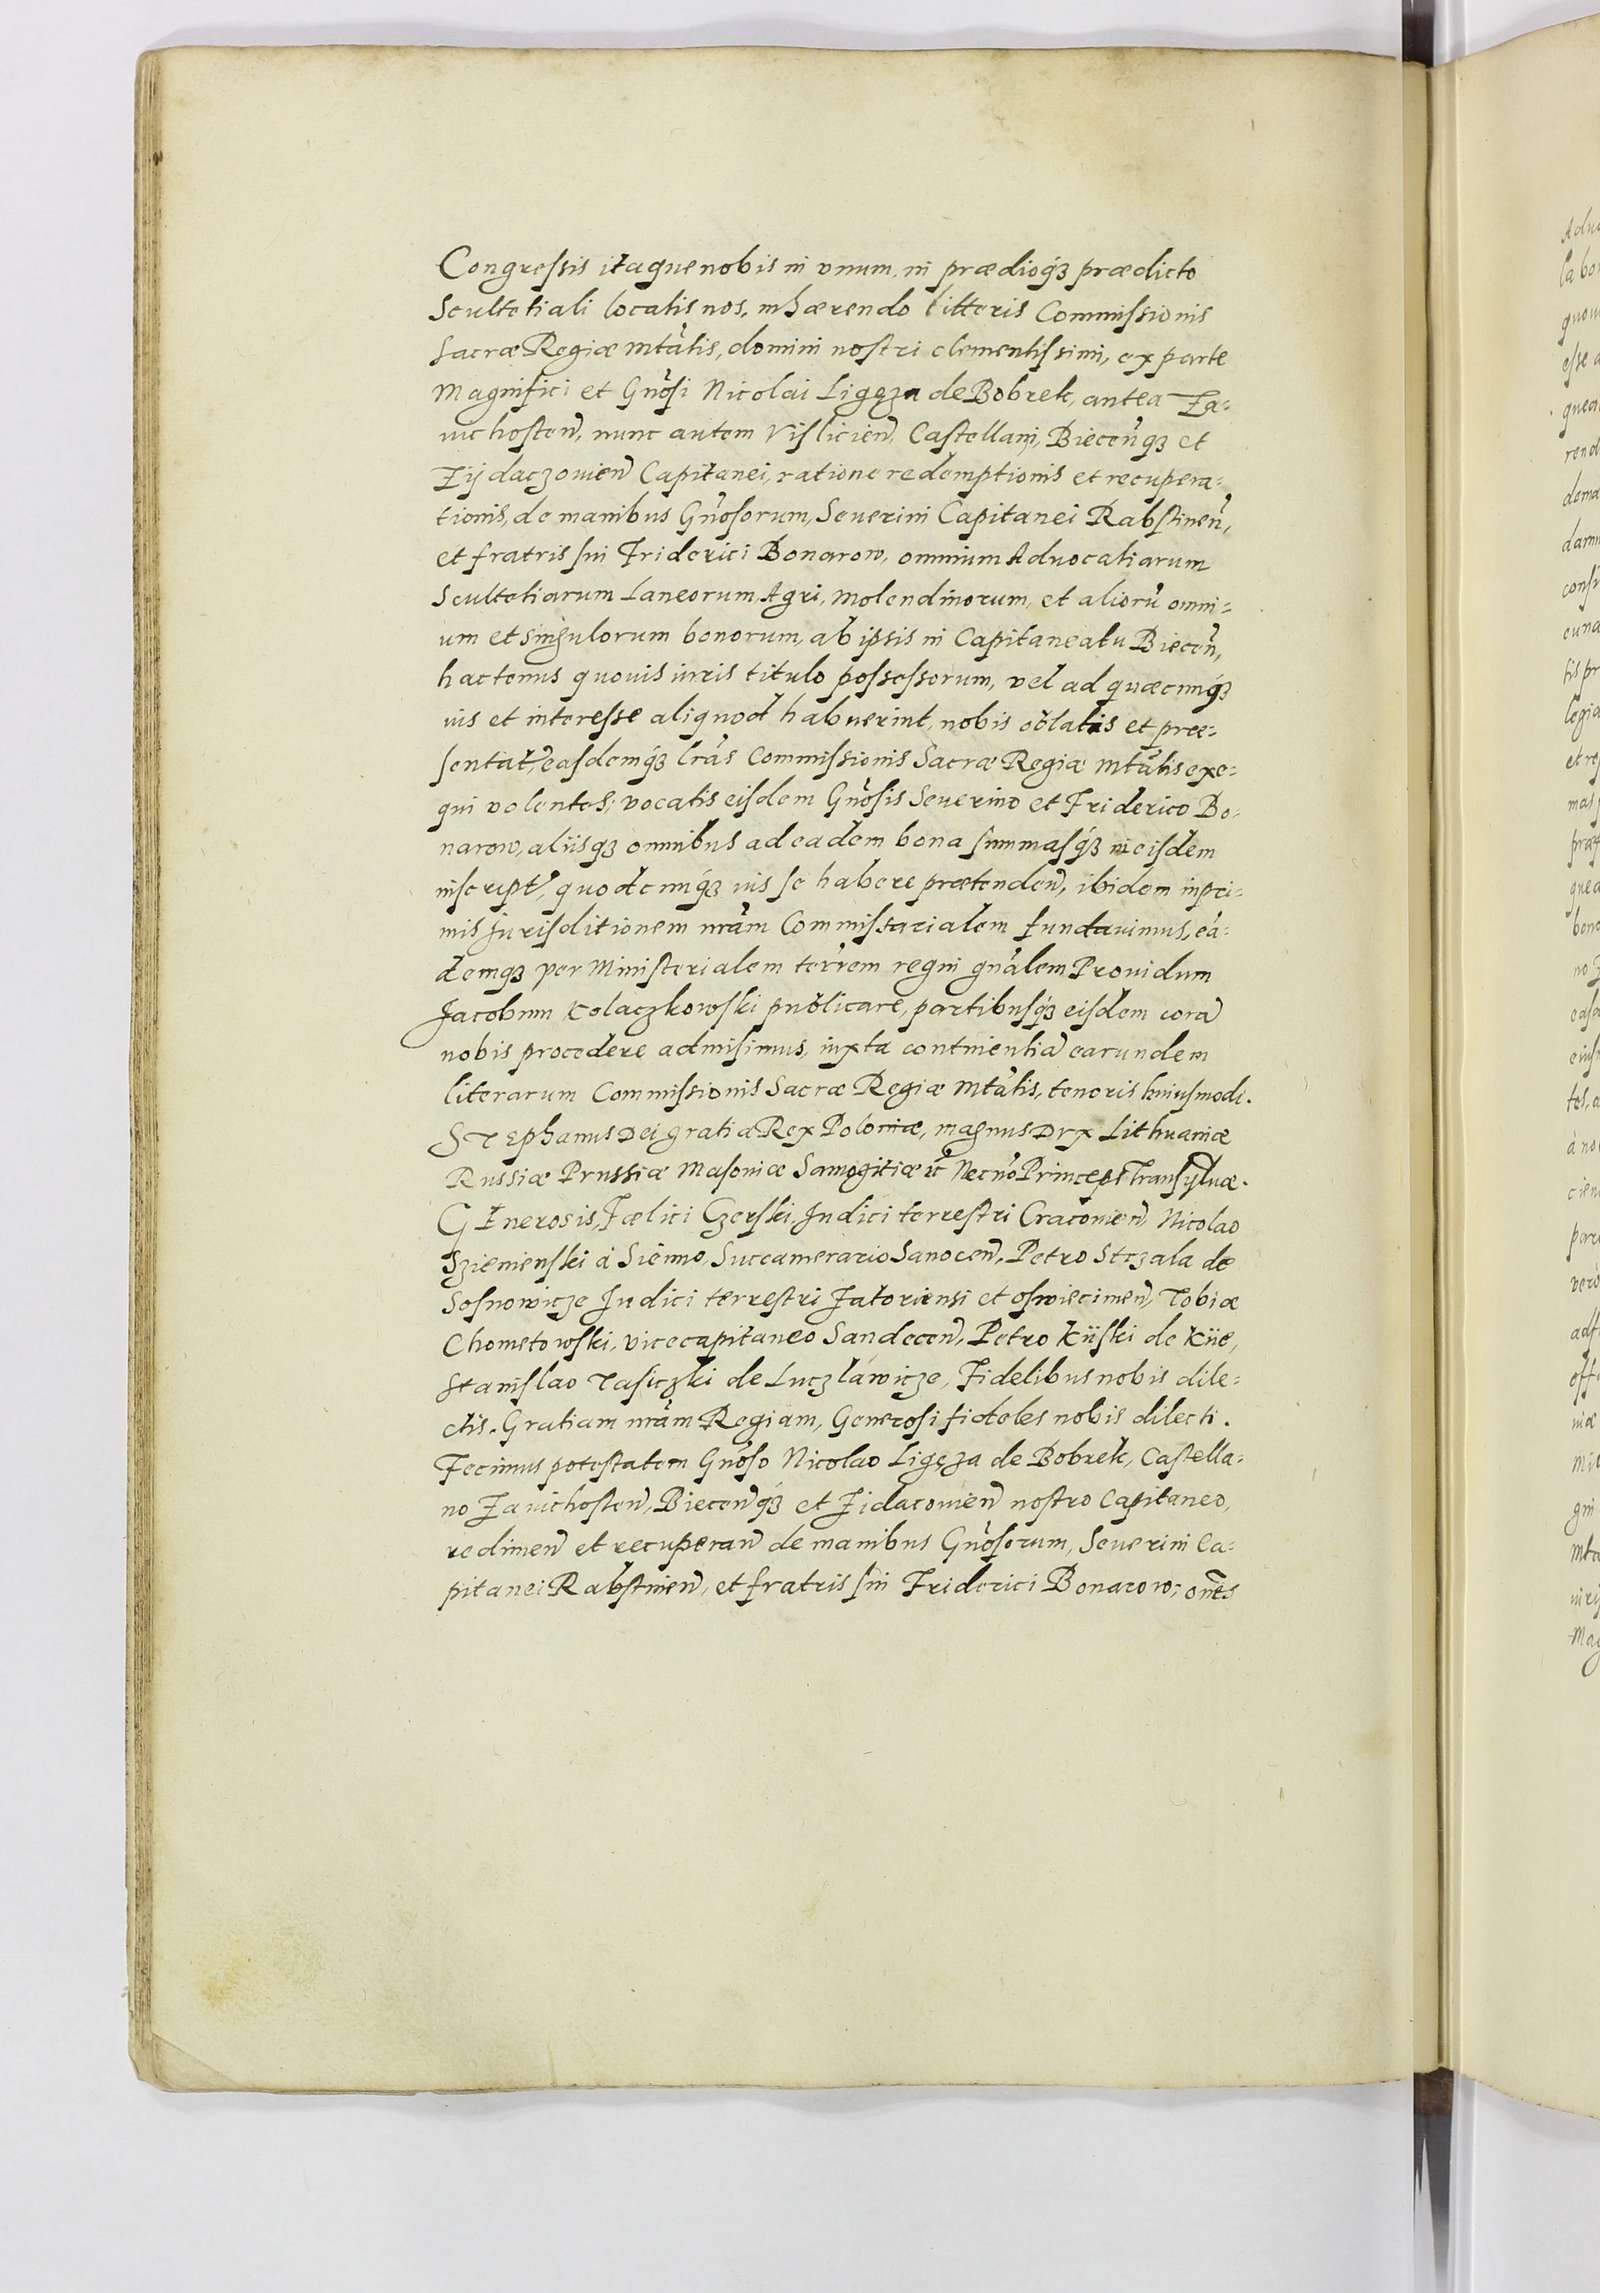 Congressis itaque nobis in vnum, in prædioq́ꝫ prædicto
Scultetiali locatis nos, inhærendo litteris Commissionis
Sacræ Regiæ Mtãtis, domini nostri clementissimi, ex parte
Magnifici et Gnõsi Nicolai Ligęza de Bobrek, antea Za-
uichosteñ, nunc autem Visliciеñ Castellani, Bieceñqꝫ et
Zijdaczouieñ Capitanei, ratione redemptionis et recupera-
tionis, de manibus Gnõsorum, Seuerini Capitanei Rabstineñ,
et fratris sui Friderici Bonarow, omnium Aduocatiarum
Scultetiarum Laneorum, Agri, Molendinorum, et aliorũ omni-
um et singulorum bonorum, ab ipsis in Capitaneatu Bieceñ,
hactenus quouis iuris titulo possessorum, vel ad quæcunq́ꝫ
ius et interesse aliquod habuerint, nobis oblatis et præ-
sentat, easdemq́ꝫ lrãs Commissionis Sacræ Regiæ Mtãtis exe-
qui volentes; vocatis eisdem Gnõsis Seuerino et Friderico Bo-
narow, aliisqꝫ omnibus ad eadem bona summasq́ꝫ in eisdem
inscript, quodcunq́ꝫ ius se habere prætendeñ, ibidem inpri-
mis Jurisditionem nrãm Commissarialem fundauimus, eá-
demqꝫ per Ministerialem terrem regni gnãlem Prouidum
Jacobum Kolaczkowski publicare, partibusq́ꝫ eisdem corã
nobis procedere admisimus, iuxta continentiã earundem
literarum Commissionis Sacræ Regiæ Mtãtis, tenoris huiusmodi.
STephanus Dei gratia Rex Poloniæ, magnus Dux Lithuaniæ
Russiæ Prussiæ Masouiæ Samogitiæ ꝛc̃ Necnõ Princeps Transyluæ.
GEnerosis, Fœlici Czerski, Judici terrestri Cracouieñ, Nicolao
Szienienski á Sienno, Succamerario Sanoceñ, Petro Strzala de
Sosnowicze Judici terrestri Zatoriensi et oswiecimeñ, Tobiæ
Chometowski, vicecapitaneo Sandeceñ, Petro Kiiski de Kiie,
Stanislao Tasiczki de Luczláwicze, Fidelibus nobis dile-
ctis. Gratiam nrãm Regiam, Generosi fideles nobis dilecti.
Fecimus potestatem Gnõso Nicolao Ligęza de Bobrek, Castella-
no Zauichosteñ, Bieceñq́ꝫ et Zidacouieñ nostro Capitaneo,
redimeñ et recuperañ de manibus Gnõsorum, Seuerini Ca-
pitanei Rabstineñ, et fratris sui Friderici Bonarow, oñes